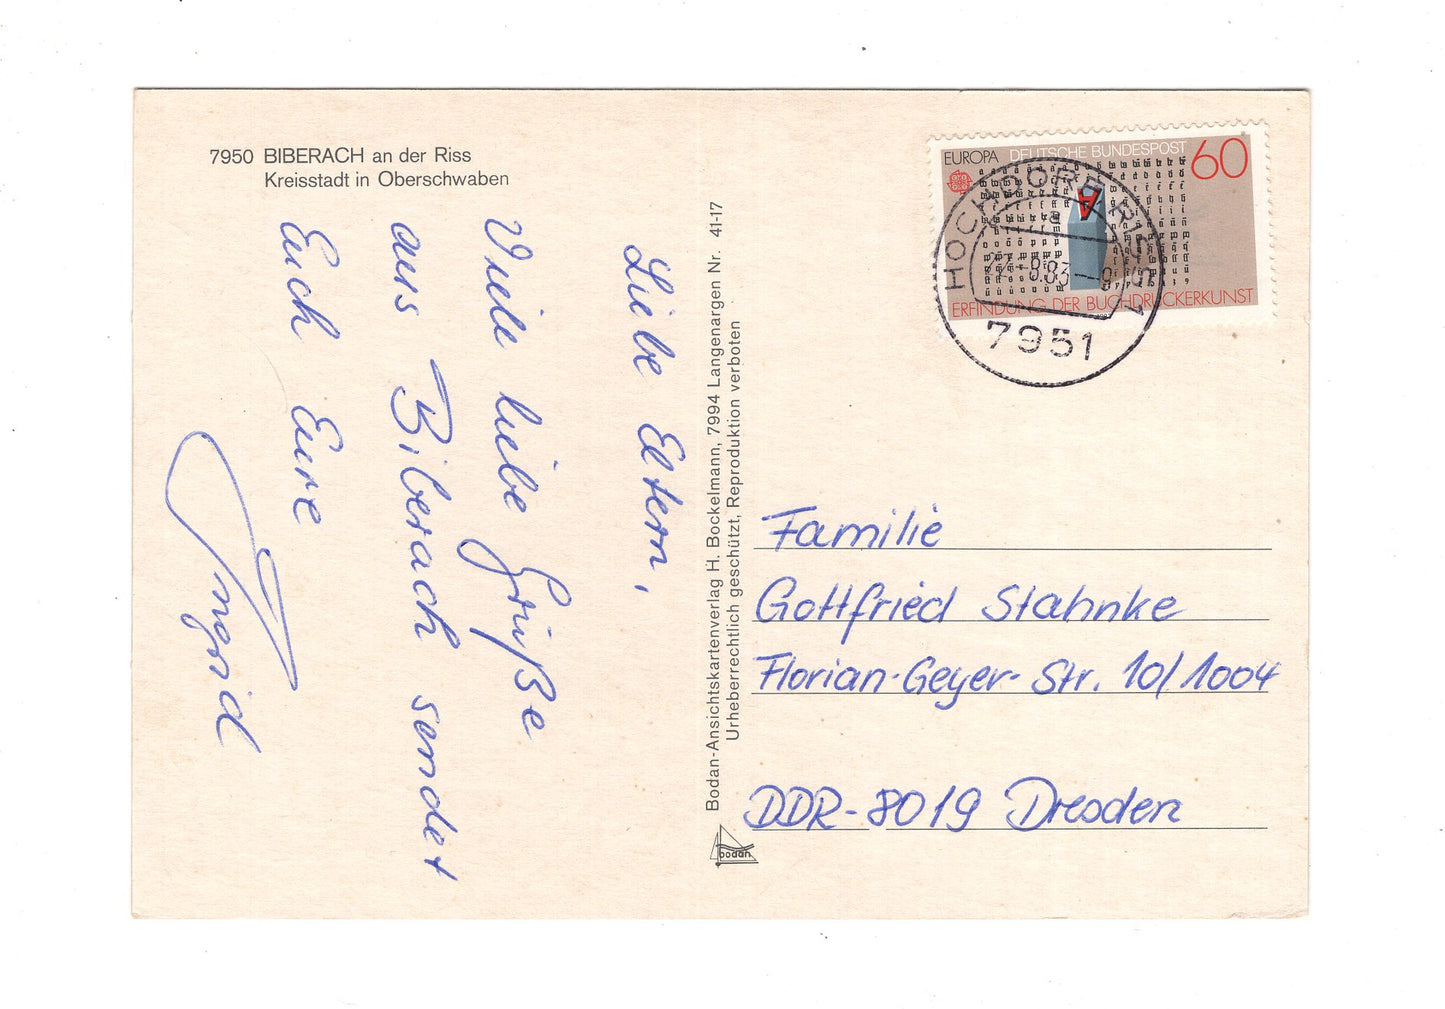 7950 BIBERACH an der Riss
Kreisstadt in Oberschwaben
Liebe Eltern,
Viele liebe Grüße
aus Biberach sendet
Euch Eure
Ingrid
Bodan-Ansichtskartenverlag H. Bockelmann, 7994 Langenargen Nr. 41-17
Urheberrechtlich geschützt, Reproduktion verboten
bodan
EUROPA DEUTSCHE BUNDESPOST 60
ERFINDUNG DER BUCHDRUCKERKUNST
HOCHDORF RISS 1
a
8.83
7951
Familie
Gottfried Stahnke
Florian-Geyer-Str. 10/1004
DDR-8019 Dresden